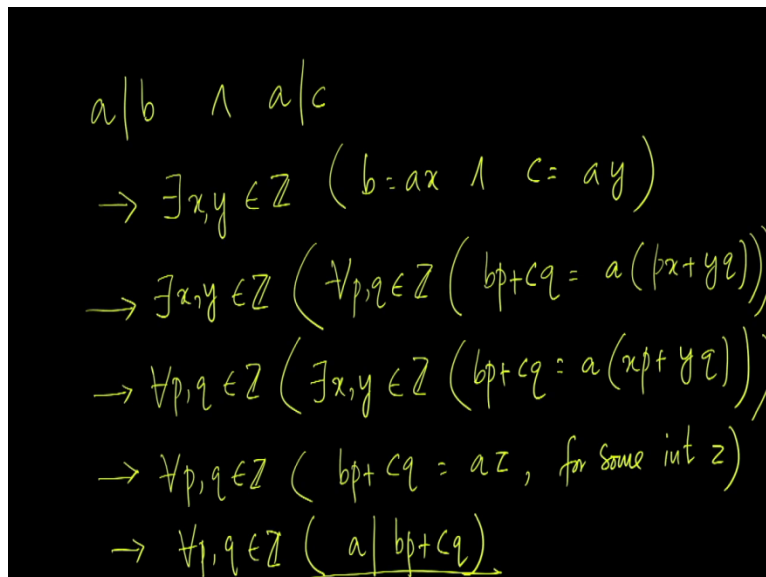 a|b ∧ a|c
→ ∃x,y ∈ ℤ (b = ax ∧ c = ay)
→ ∃x,y ∈ ℤ (∀p,q ∈ ℤ (bp+cq = a(px+yq)))
→ ∀p,q ∈ ℤ (∃x,y ∈ ℤ (bp+cq = a(xp+yq)))
→ ∀p,q ∈ ℤ (bp+cq = az, for some int z)
→ ∀p,q ∈ ℤ (a|bp+cq)